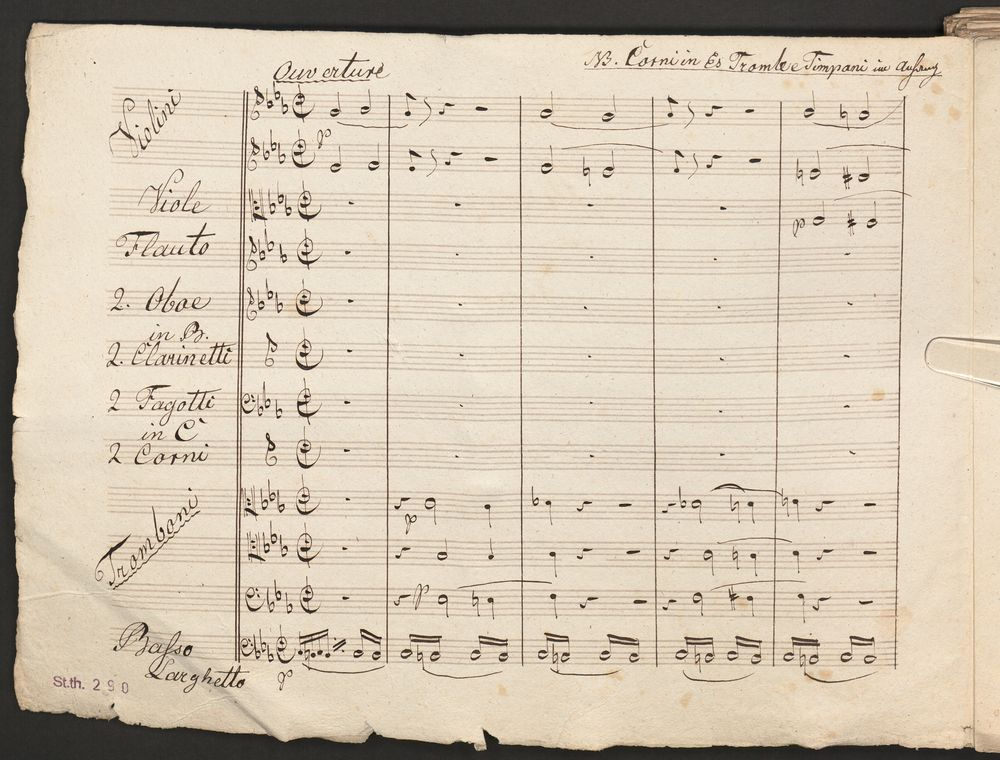 Ouverture
NB. Corni in Es Trombe Timpani im Anfang
Violini
Viole
Flauto
2. Oboe
in B.
2. Clarinetti
2 Fagotti
in C
2 Corni
Tromboni
Basso
Larghetto
St.th. 290